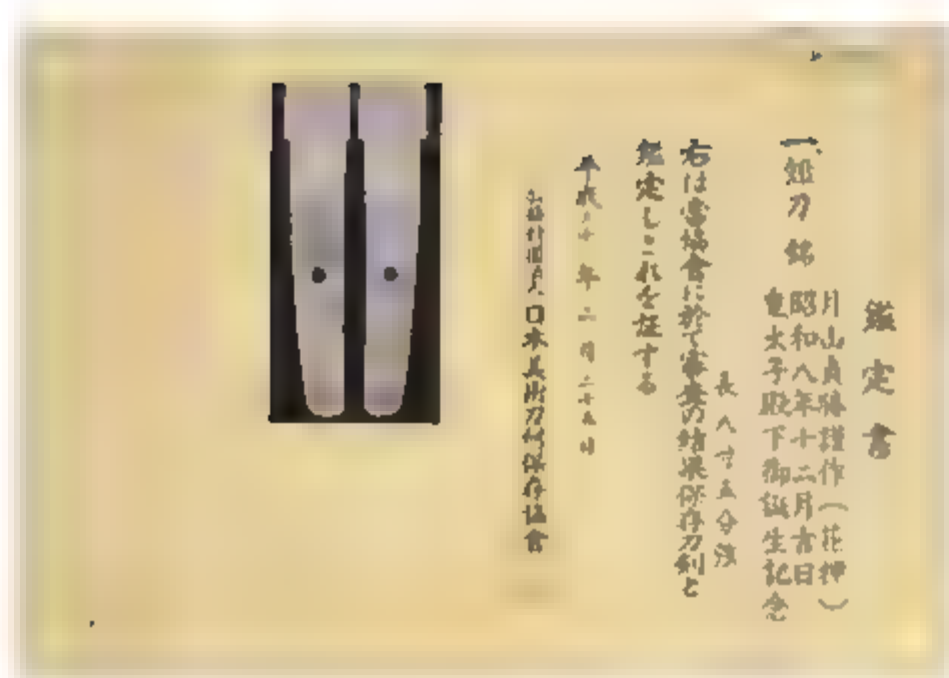 鑑定書
一、短刀 銘
月山貞勝謹作(花押)
昭和八年十二月吉日
皇太子殿下御誕生記念
長 八寸五分強
右は当協会に於て審査の結果保存刀剣と
鑑定しこれを証する
平成 年 二月二十五日
財団法人日本美術刀剣保存協会